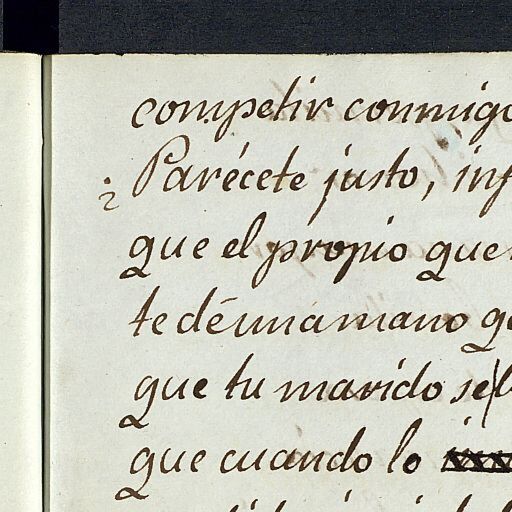 competir conmigo
¿Parécete justo, inf
que el propio que
te dé una mano
que tu marido se
que cuando lo